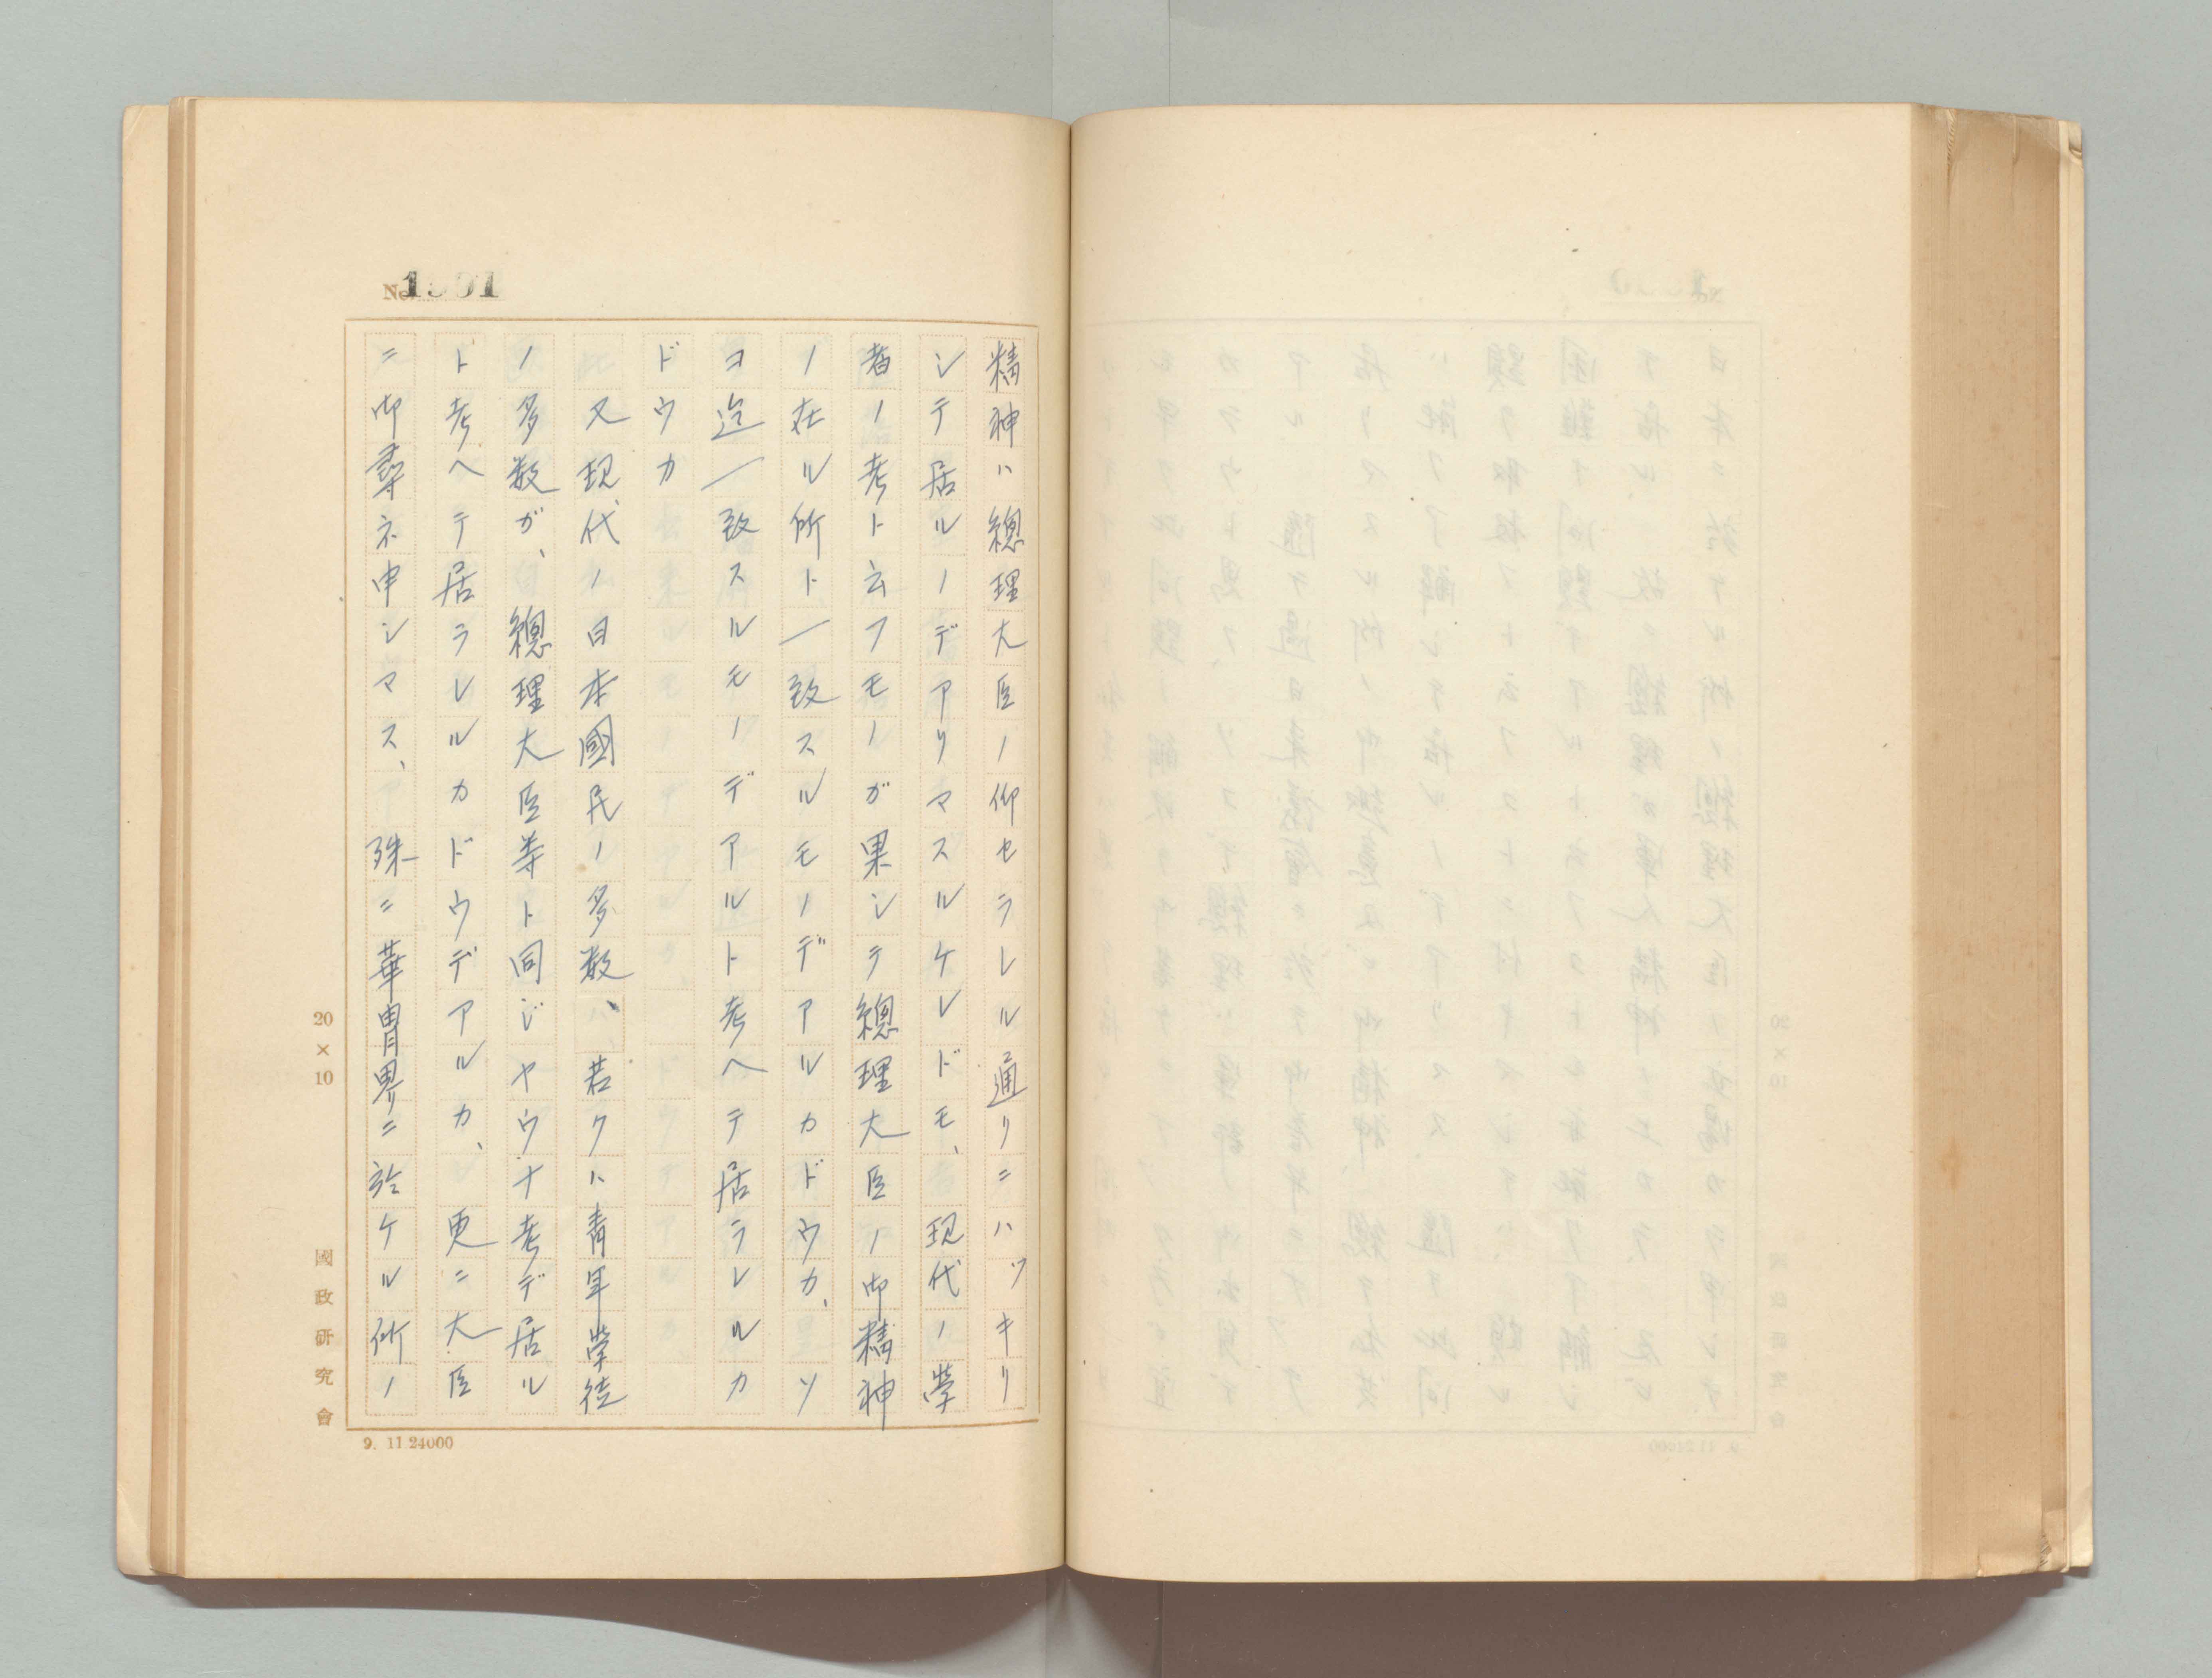 精神ハ總理大臣ノ仰セラレル通リニハツキリ
シテ居ルノデアリマスルケレドモ、現代ノ學
者ノ考ト云フモノガ果シテ總理大臣ノ御精神
ノ在ル所ト一致スルモノデアルカドウカ、ソ
コ迄一致スルモノデアルト考ヘテ居ラレルカ
ドウカ
又現代ノ日本國民ノ多数、若クハ青年學徒
ノ多数ガ、總理大臣等ト同ジヤウナ考デ居ル
ト考ヘテ居ラレルカドウデアルカ、更ニ大臣
ニ御尋ネ申シマス、殊ニ華冑界ニ於ケル所ノ
20×10
國政研究會
9. 11.24000